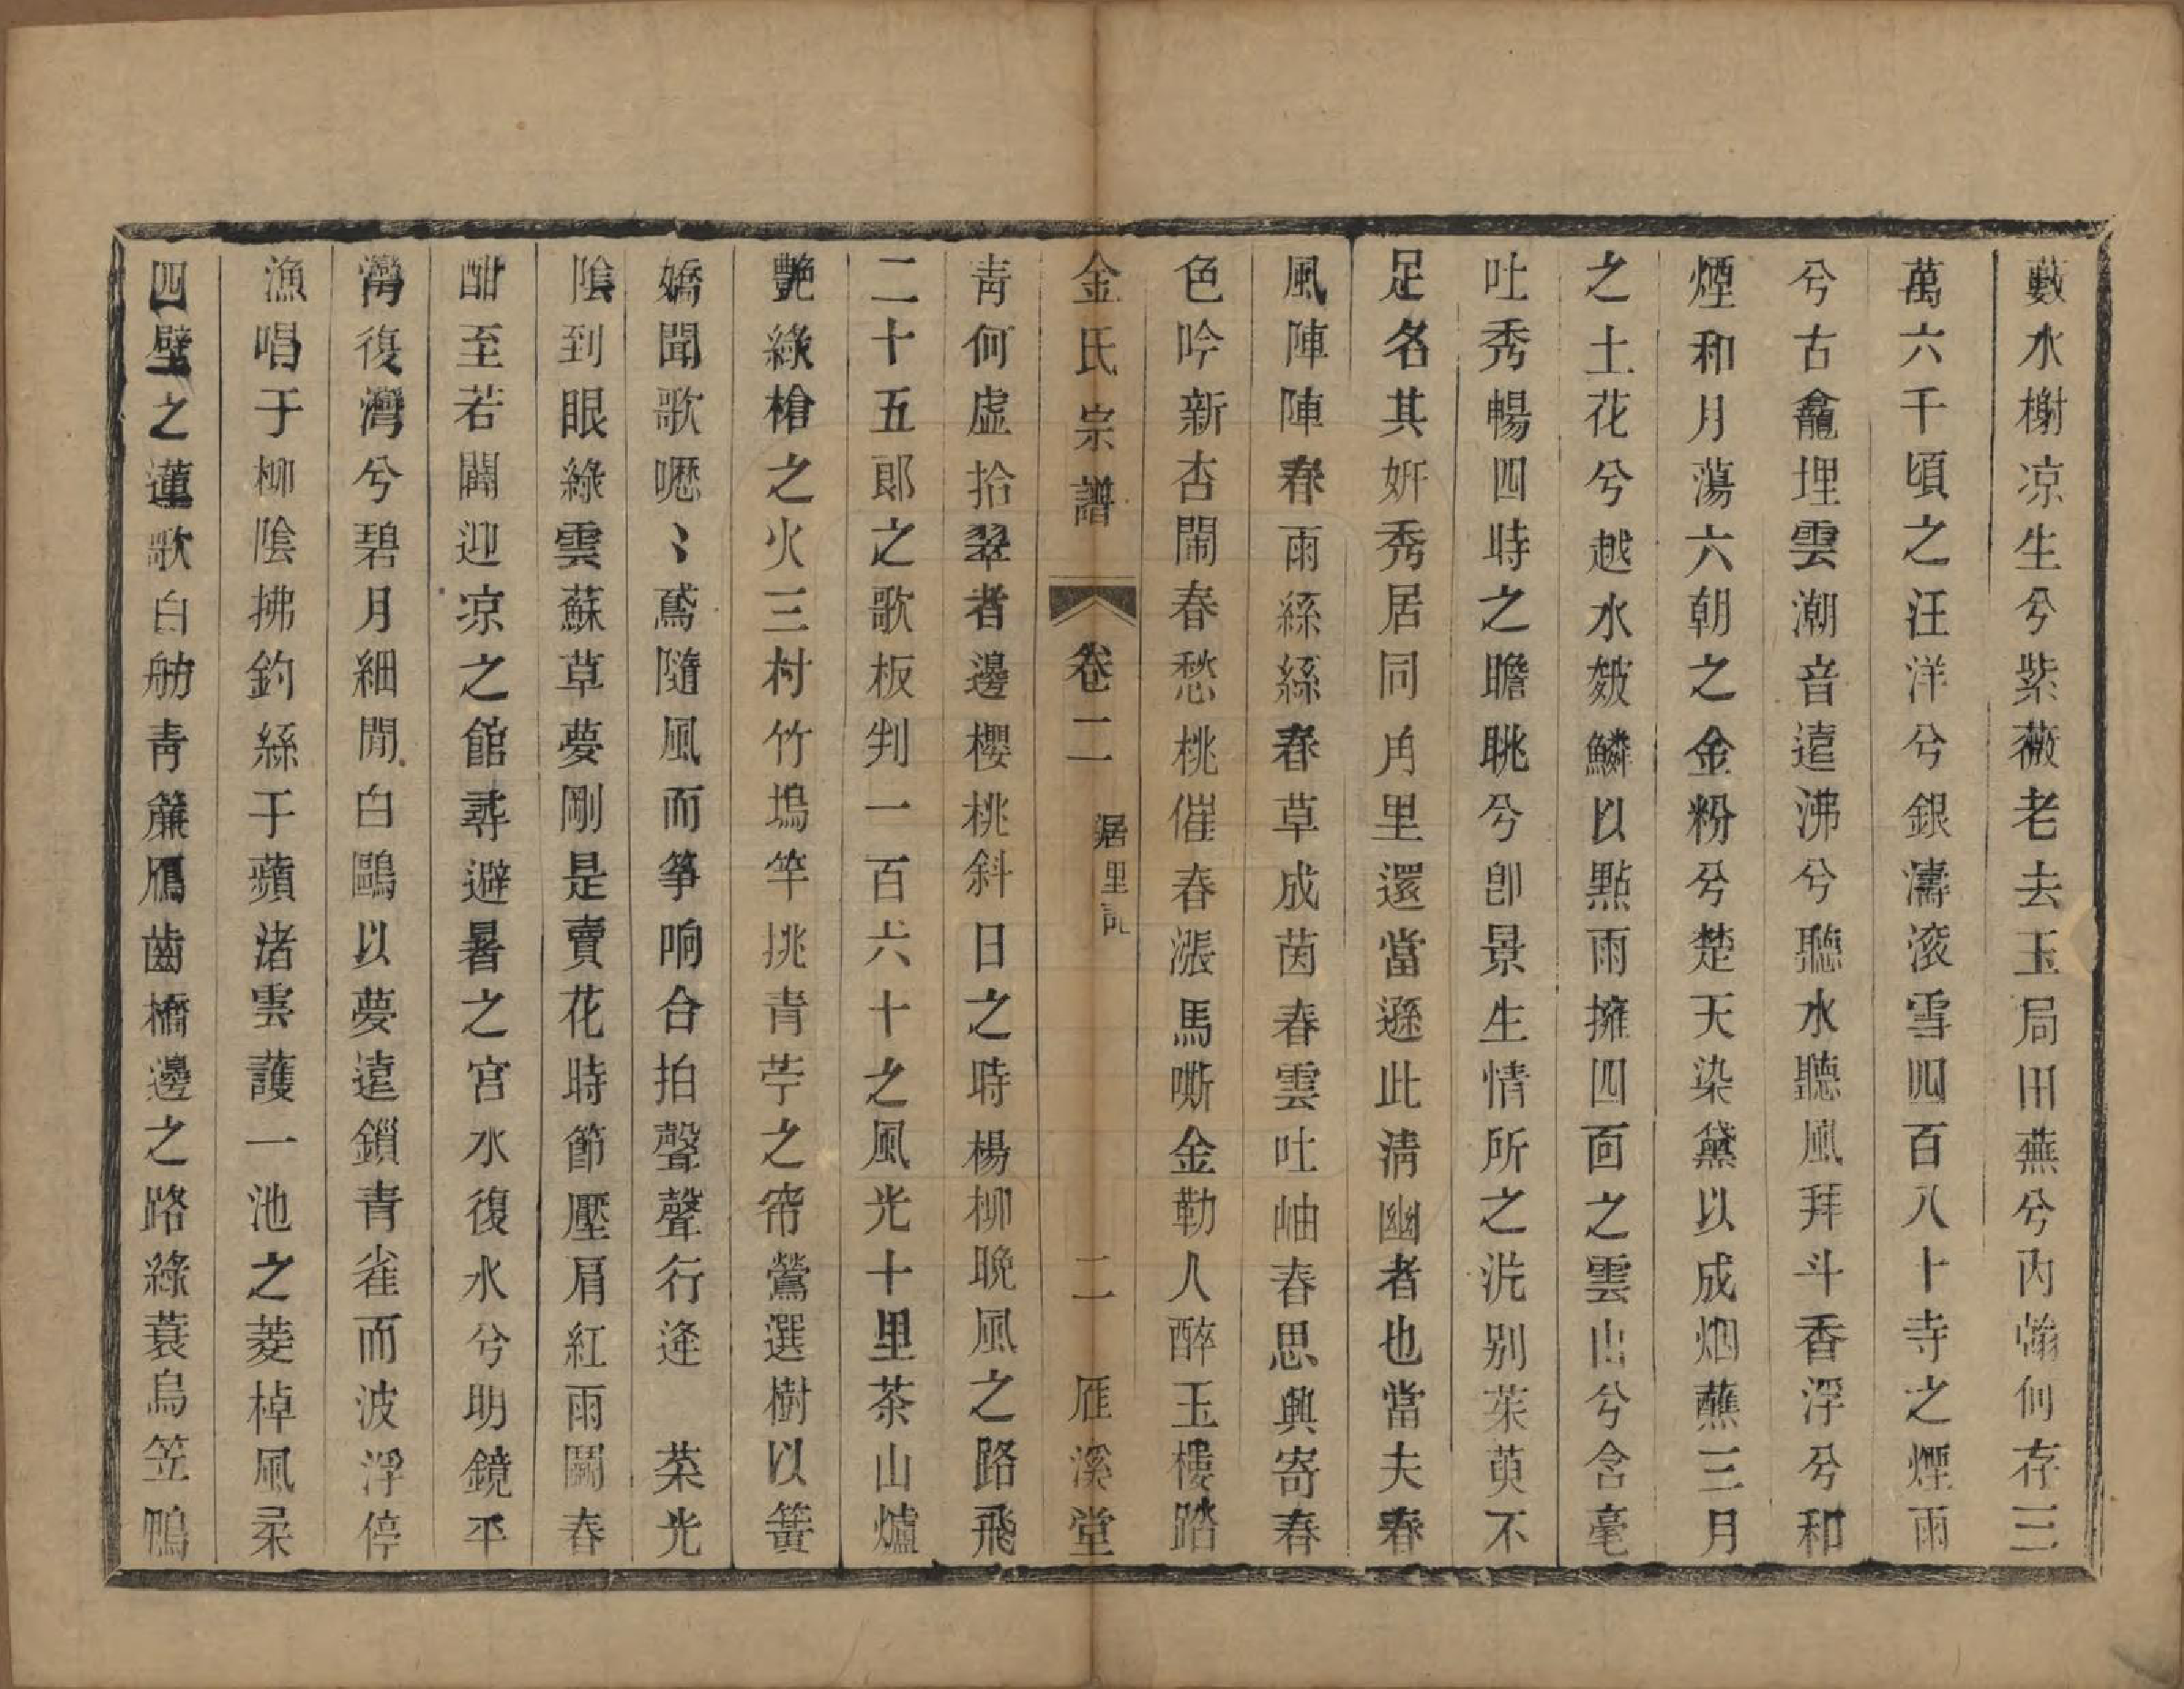 藪水榭凉生兮紫薇老去玉局田蕪兮內翰何存三
萬六千頃之汪洋兮銀濤滚雪四百八十寺之煙雨
兮古龕埋雲潮音遠沸兮聽水聽風拜斗香浮兮和
煙和月蕩六朝之金粉兮楚天染黛以成烟蘸三月
之土花兮越水皴鱗以點雨擁四面之雲山兮含毫
吐秀暢四時之瞻眺兮卽景生情所之洗别茱萸不
足名其姸秀居同甪里還當遜此淸幽者也當夫春
風陣陣春雨絲絲春草成茵春雲吐岫春思興寄春
色吟新杏鬧春愁桃催春漲馬嘶金勒人醉玉樓踏
金氏宗譜 卷二 居里記 二 雁溪堂
靑何處拾翠者邊櫻桃斜日之時楊柳晚風之路飛
二十五郎之歌板判一百六十之風光十里茶山爐
艷綠槍之火三村竹塢竿挑青苧之帘鶯選樹以簧
嬌聞歌嚦〻鳶隨風而箏响合拍聲聲行逢 菜光
陰到眼綠雲蘇草夢剛是賣花時節壓肩紅雨鬭春
酣至若闢迎凉之館尋避暑之宮水復水兮明鏡平
灣復灣兮碧月細閒白鷗以夢遠鎖青雀而波浮停
漁唱于柳陰拂釣絲于蘋渚雲護一池之菱棹風柔
四壁之蓮歌白舫靑簾雁齒橋邊之路綠蓑烏笠鴨